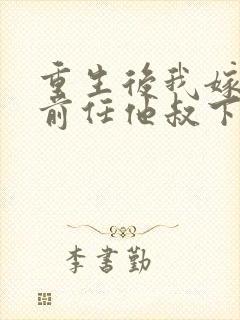 重生後我嫁
前任他叔下
李書勤